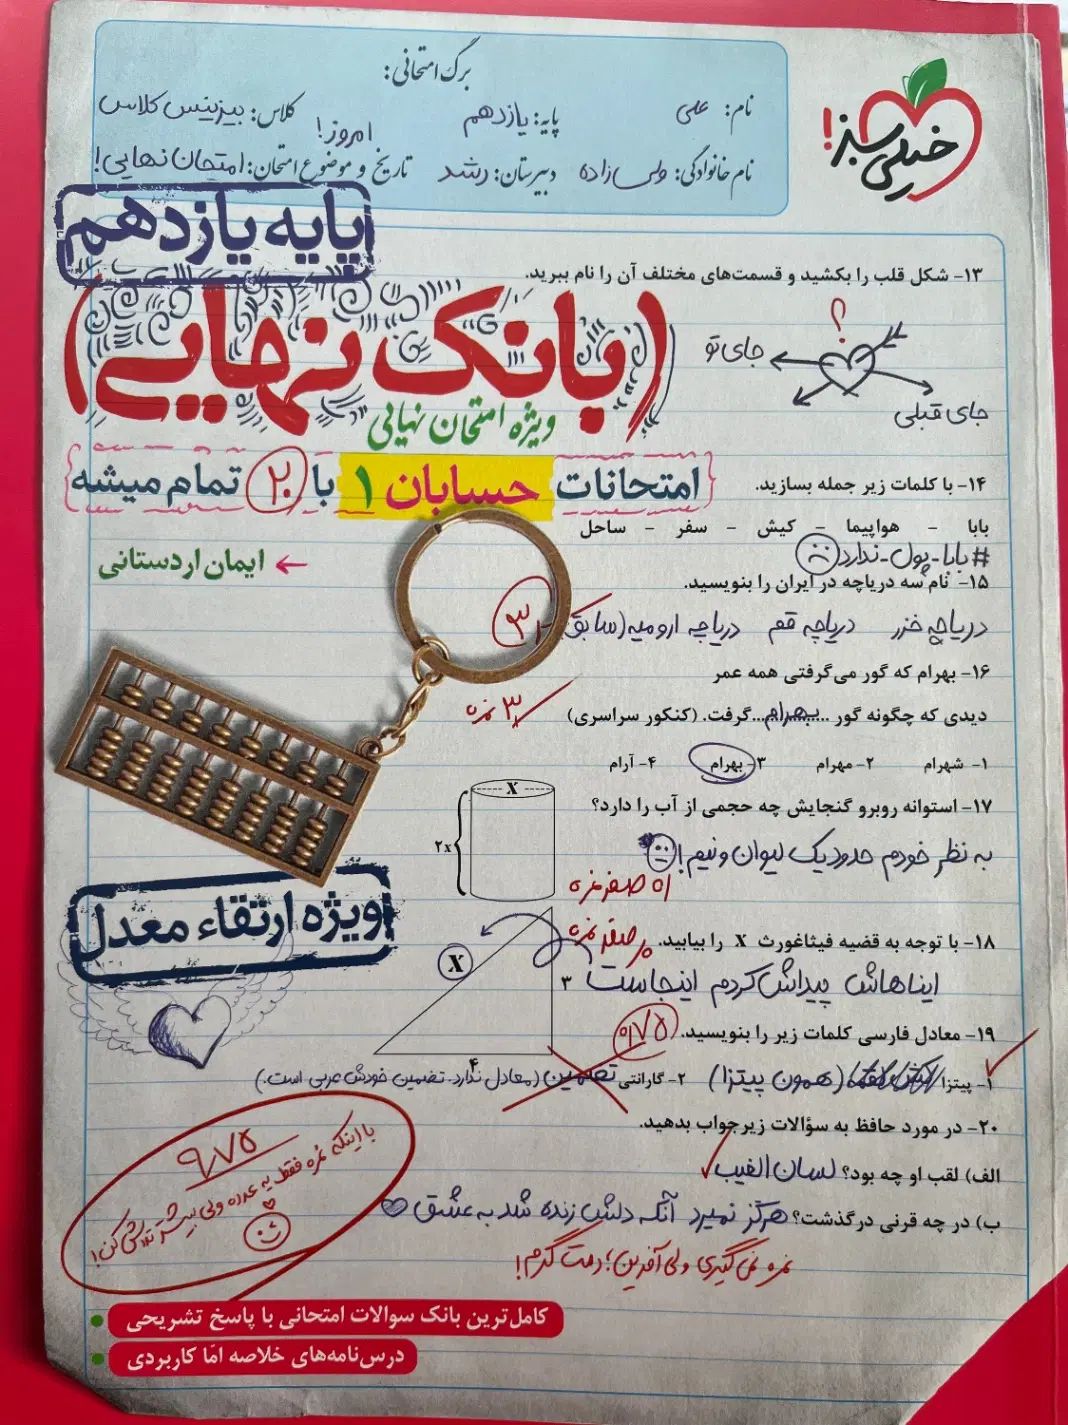 برگ امتحانی:
نام: علی
پایه: یازدهم
کلاس: بیزینس کلاس
نام خانوادگی: ولی زاده
دبیرستان: رشد
تاریخ و موضوع امتحان: امروز! امتحان نهایی!
خیلی سبز!
پایه یازدهم
(بانک نهایی)
ویژه امتحان نهایی
امتحانات حسابان ۱ با ۲۰ تمام میشه
ایمان اردستانی
ویژه ارتقاء معدل
۱۳- شکل قلب را بکشید و قسمت‌های مختلف آن را نام ببرید.
؟
جای تو
جای قبلی
۱۴- با کلمات زیر جمله بسازید.
بابا - هواپیما - کیش - سفر - ساحل
#بابا-پول-ندارد
۱۵- نام سه دریاچه در ایران را بنویسید.
دریاچه خزر دریاچه قم دریاچه ارومیه (سابق)
۳
۱۶- بهرام که گور می‌گرفتی همه عمر
دیدی که چگونه گور ...بهرام... گرفت. (کنکور سراسری)
۳ نمره
۱- شهرام ۲- مهرام ۳- بهرام ۴- آرام
۱۷- استوانه روبرو گنجایش چه حجمی از آب را دارد؟
x
۲x
به نظر خودم حدود یک لیوان و نیم!
صفر نمره
۱۸- با توجه به قضیه فیثاغورث x را بیابید.
صفر نمره
x
۳
۴
ایناهاش پیداش کردم اینجاست
۱۹- معادل فارسی کلمات زیر را بنویسید.
۰/۷۵
۱- پیتزا (همون پیتزا) ۲- گارانتی تضمین (معادل ندارد. تضمین خودش عربی است.)
۲۰- در مورد حافظ به سؤالات زیر جواب بدهید.
الف) لقب او چه بود؟ لسان الغیب
ب) در چه قرنی درگذشت؟ هرگز نمیرد آنکه دلش زنده شد به عشق
نمره نمی‌گیری ولی آفرین؛ دمت گرم!
۹/۷۵
با اینکه نمره فقط یه عدده ولی بیشتر تلاش کن!
کامل‌ترین بانک سوالات امتحانی با پاسخ تشریحی
درس‌نامه‌های خلاصه امّا کاربردی